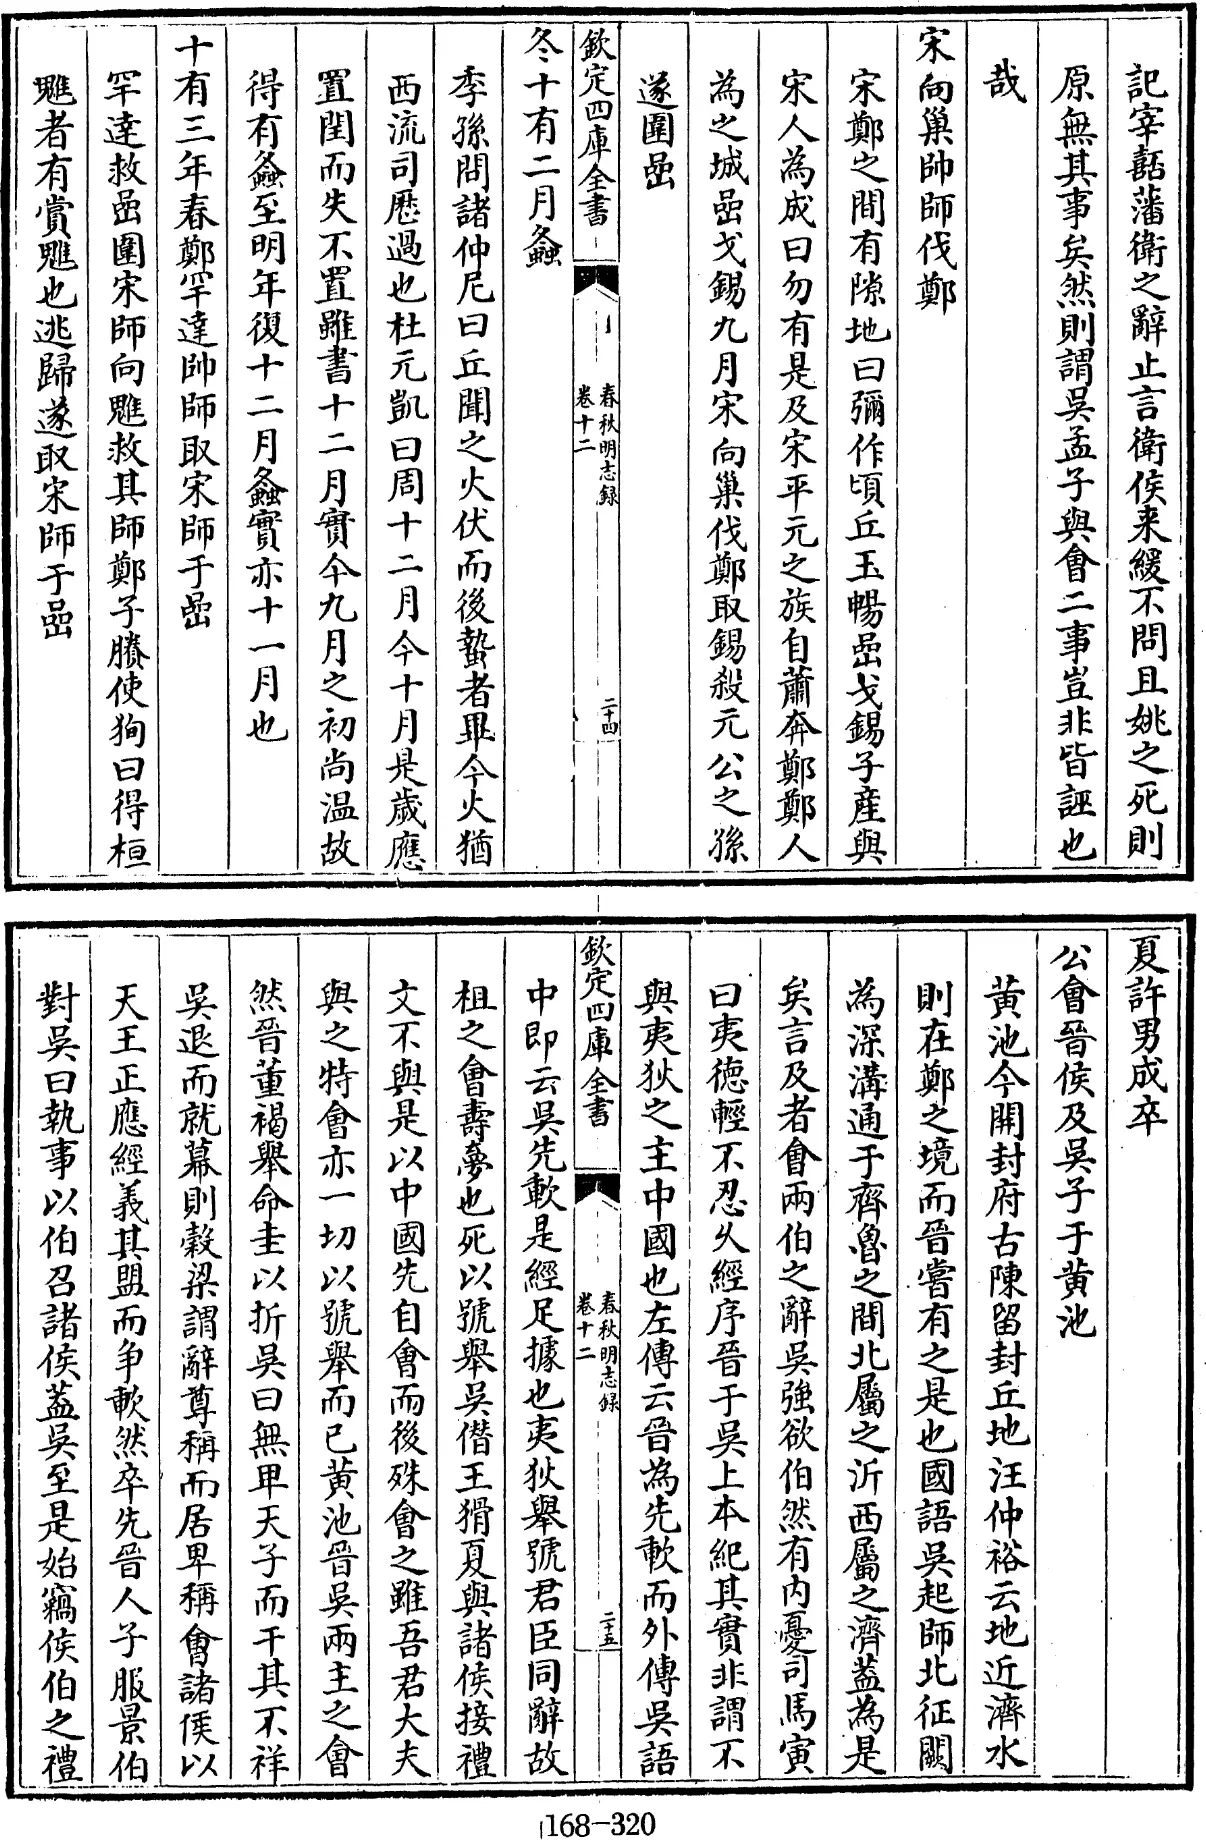 記宰嚭藩衛之辭止言衛侯来緩不問且姚之死則
原無其事矣然則謂吳孟子與會二事豈非皆誣也
哉
宋向巢帥師伐鄭
宋鄭之間有隙地曰彌作頃丘玉暢嵒戈錫子產與
宋人為成曰勿有是及宋平元之族自蕭奔鄭鄭人
為之城嵒戈錫九月宋向巢伐鄭取錫殺元公之孫
遂圍嵒
欽定四庫全書
春秋明志録
卷十二
二十四
冬十有二月螽
季孫問諸仲尼曰丘聞之火伏而後蟄者畢今火猶
西流司厯過也杜元凱曰周十二月今十月是歲應
置閏而失不置雖書十二月實今九月之初尚温故
得有螽至明年復十二月螽實亦十一月也
十有三年春鄭罕達帥師取宋師于嵒
罕達救嵒圍宋師向魋救其師鄭子賸使狥曰得桓
魋者有賞魋也逃歸遂取宋師于嵒
夏許男成卒
公會晉侯及吳子于黄池
黄池今開封府古陳留封丘地汪仲裕云地近濟水
則在鄭之境而晉嘗有之是也國語吳起師北征闕
為深溝通于齊魯之間北屬之沂西屬之濟蓋為是
矣言及者會兩伯之辭吳強欲伯然有内憂司馬寅
曰夷徳輕不忍乆經序晉于吳上本紀其實非謂不
與夷狄之主中國也左傳云晉為先歃而外傳吳語
欽定四庫全書
春秋明志録
卷十二
二十五
中即云吳先歃是經足據也夷狄舉號君臣同辭故
柤之會壽夢也死以號舉吳僭王猾夏與諸侯接禮
文不與是以中國先自會而後殊會之雖吾君大夫
與之特會亦一切以號舉而已黄池晉吳兩主之會
然晉董褐舉命圭以折吳曰無卑天子而干其不祥
吳退而就幕則穀梁謂辭尊稱而居卑稱會諸侯以
天王正應經義其盟而争歃然卒先晉人子服景伯
對吳曰執事以伯召諸侯蓋吳至是始竊侯伯之禮
168-320